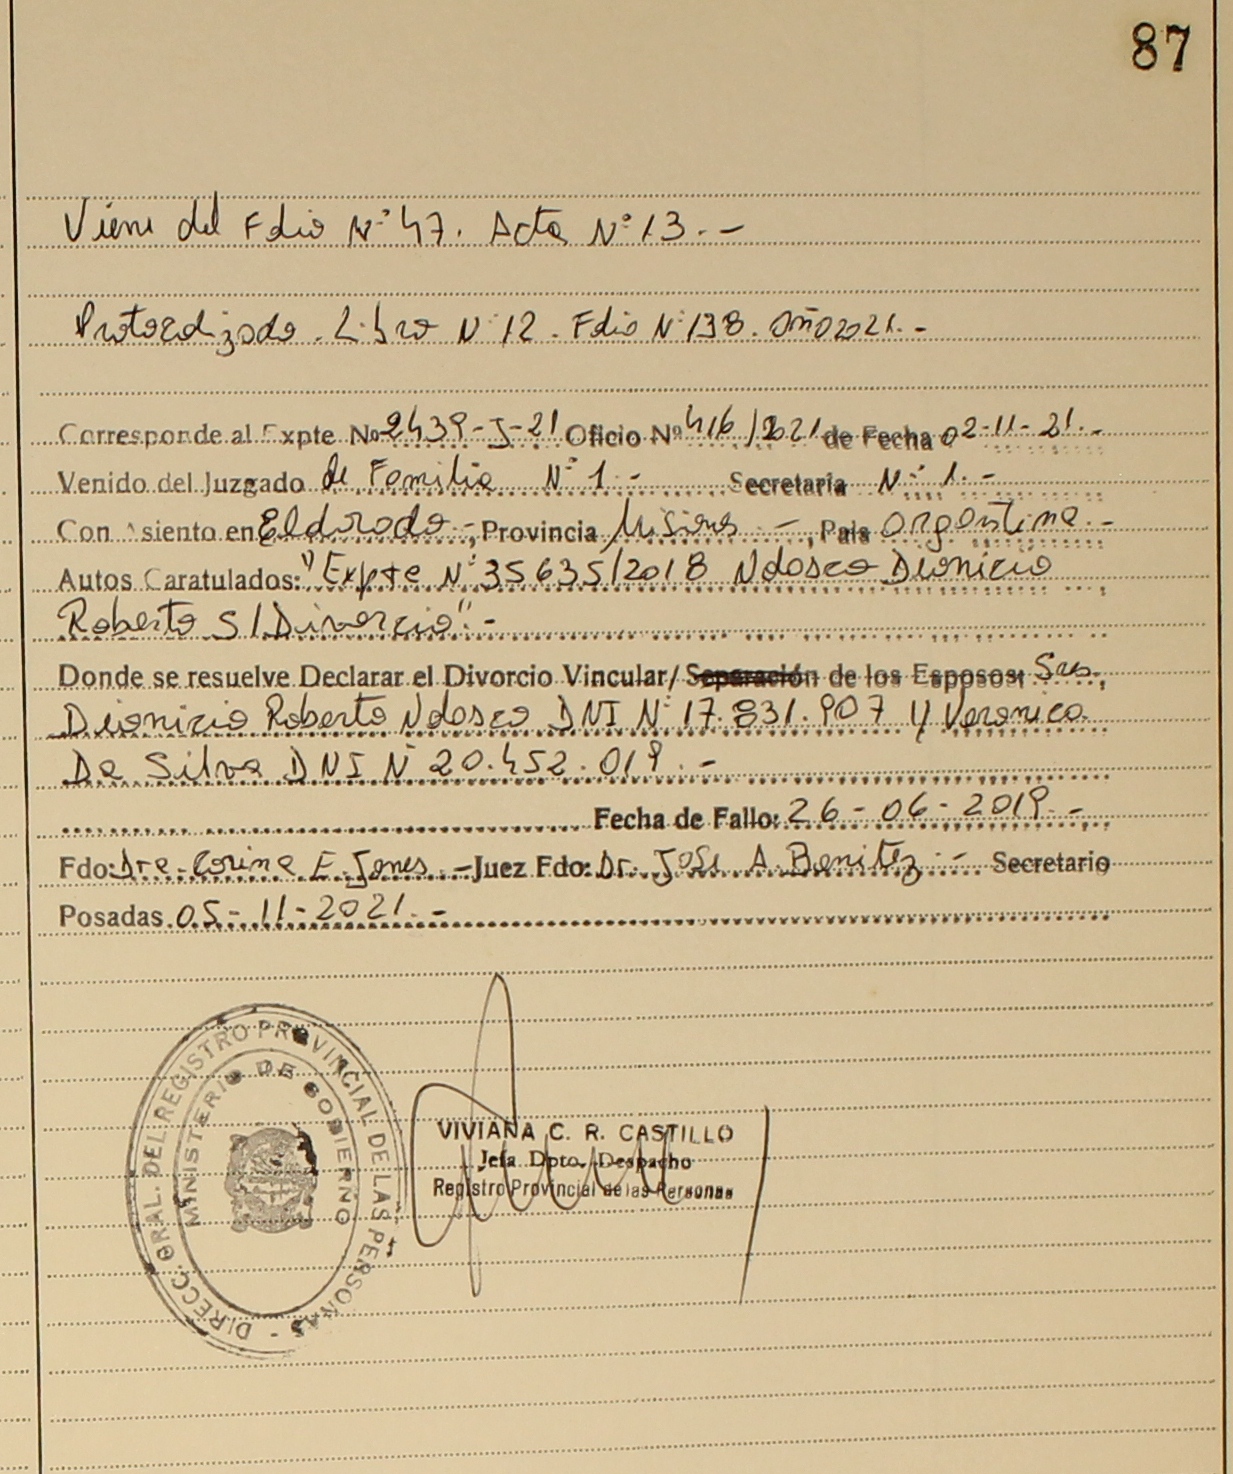 87
Viene del Folio N° 47. Acta N° 13.-
Protocolizado. Libro N° 12. Folio N° 138. Año 2021.-
Corresponde al Expte No 2439-J-21 Oficio Nº 416/2021 de Fecha 02-11-21.-
Venido del Juzgado de Familia N° 1.- Secretaria N° 1.-
Con Asiento en Eldorado.-, Provincia Misiones.-, Pais Argentina.-
Autos Caratulados: "Expte N° 35635/2018 Ndosco Dionicio
Roberto S/Divorcio".-
Donde se resuelve Declarar el Divorcio Vincular/ Separación de los Esposos: Sres.
Dionicio Roberto Ndosco DNI N° 17.831.907 y Veronica
Da Silva DNI N° 20.452.019.-
Fecha de Fallo: 26-06-2019.-
Fdo: Dra. Corina E. Jones.- Juez Fdo: Dr. José A. Benitez.- Secretario
Posadas 05-11-2021.-
DIRECC. GRAL. DEL REGISTRO PROVINCIAL DE LAS PERSONAS -
MINISTERIO DE GOBIERNO
VIVIANA C. R. CASTILLO
Jefa Dpto. Despacho
Registro Provincial de las Personas